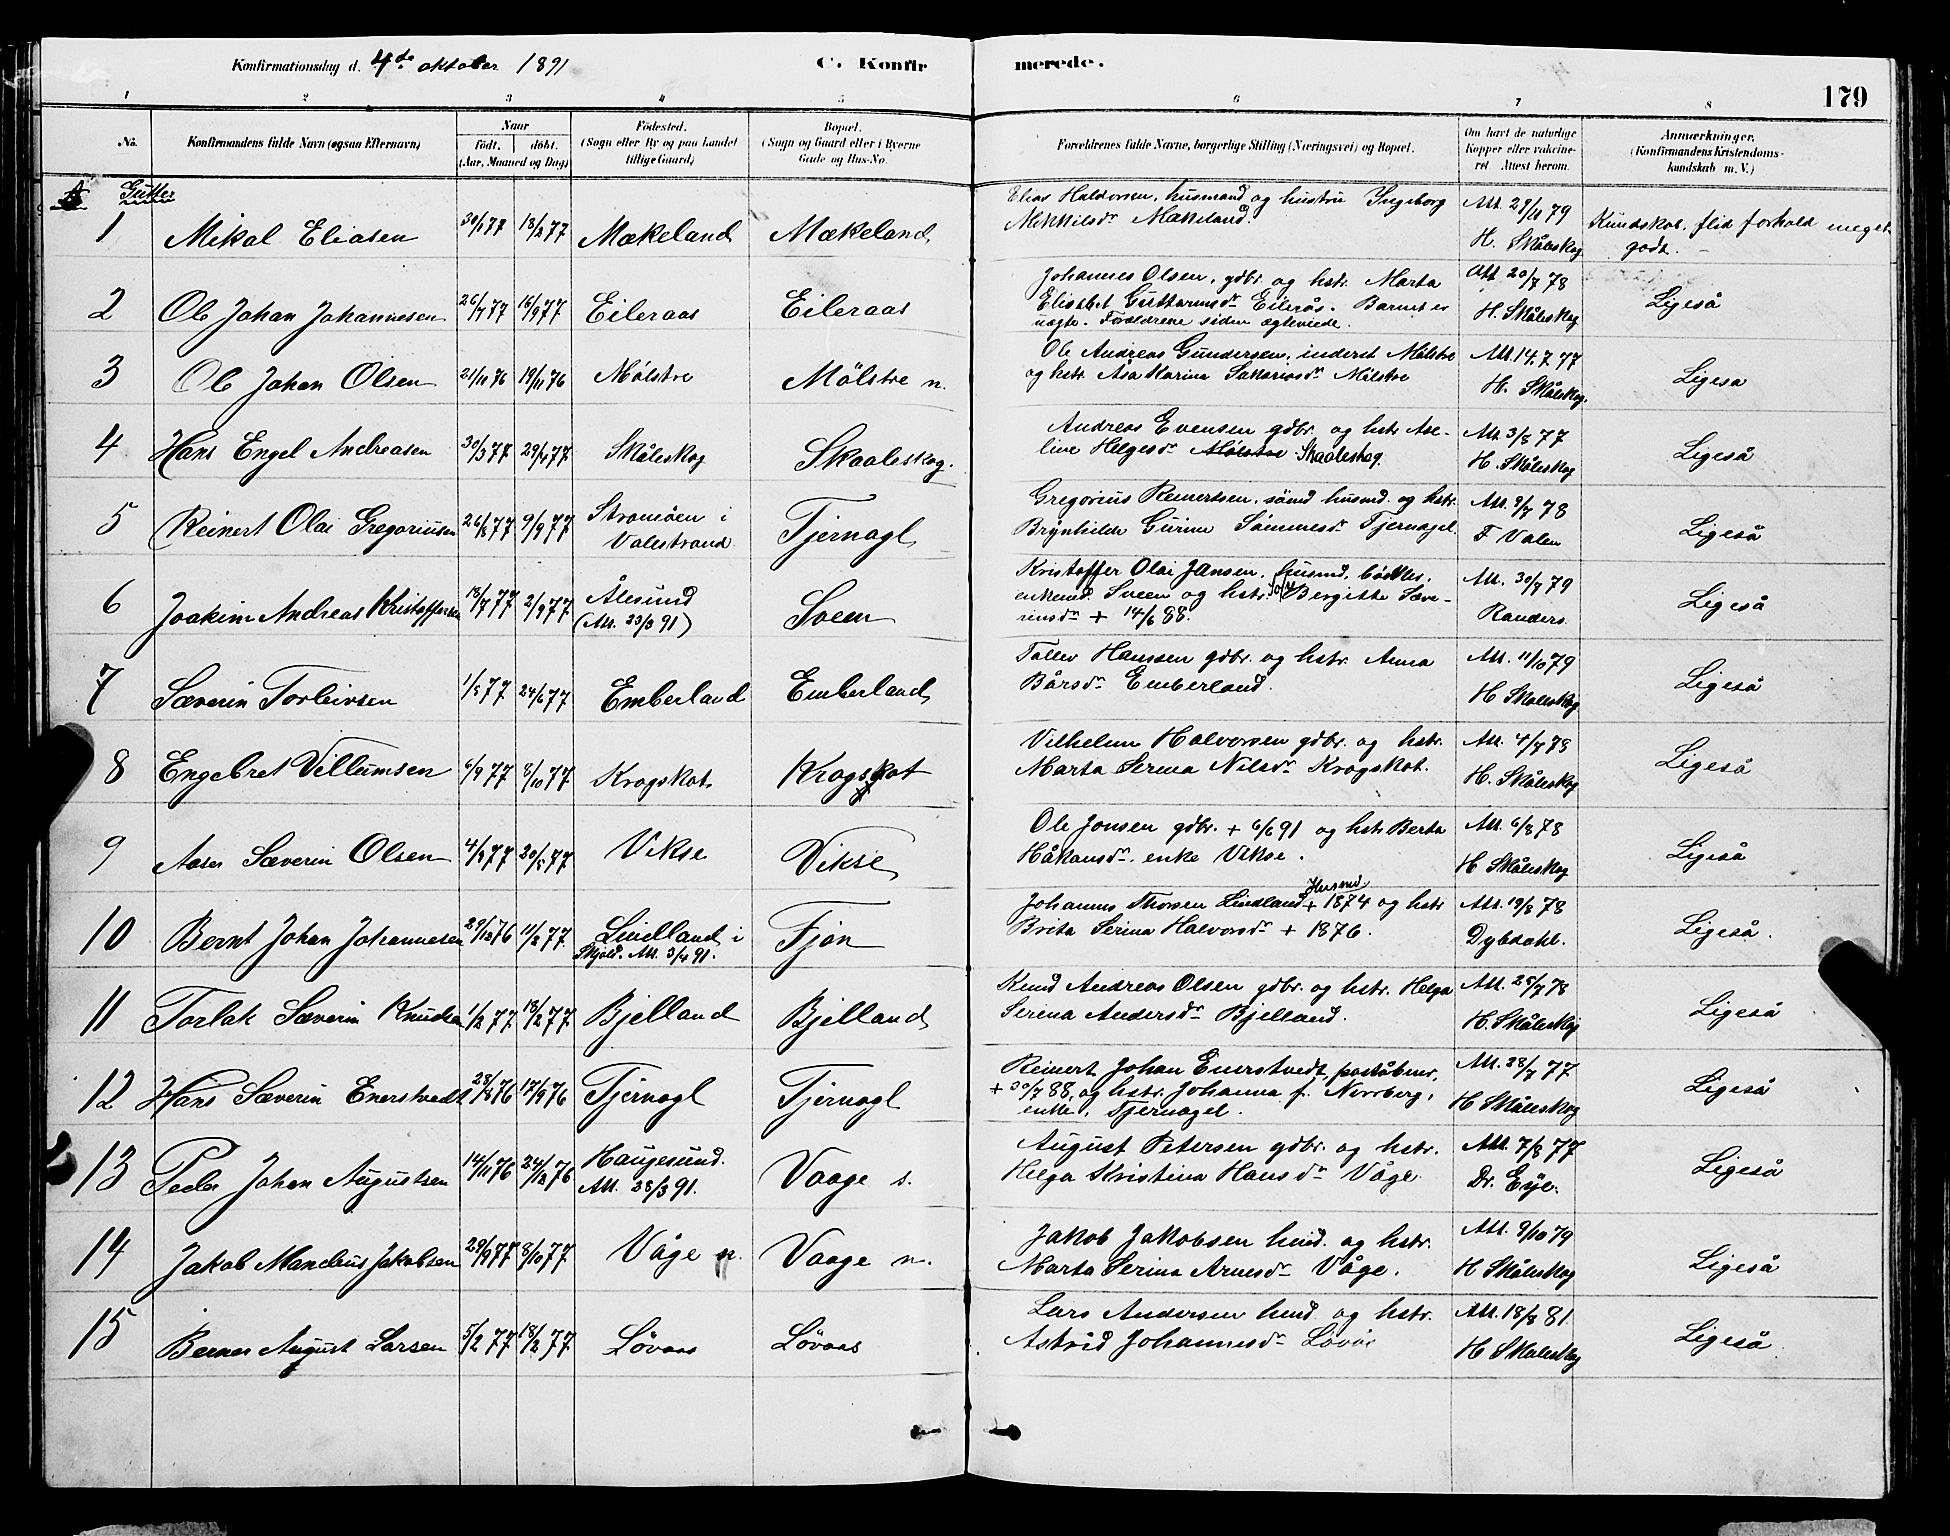 Konfirmationsdag d. 4de oktober 1891 C. Konfirmerede. 179
1 2 3 4 5 6 7 8
No. Konfirmandens fulde Navn (ogsaa Efternavn) Naar födt. döbt. (Aar, Maaned og Dag) Födested. (Sogn eller By og paa Landet tillige Gaard) Bopæl. (Sogn og Gaard eller i Byerne Gade og Hus-No. Forældrenes fulde Navne, borgerlige Stilling (Næringsvei) og Bopæl. Om havt de naturlige Kopper eller vakcineret Attest herom. Anmærkninger. (Konfirmandens Kristendomskundskab m. V.)
A Gutter
1 Mikal Eliasen 30/1 77 18/2 77 Mækeland Mækeland Elias Haldorsen, husmand og hustru Ingeborg Mikkilsdr Mækeland Att. 29/10 79 H. Skåleskog Kundskab, flid forhold meget godt. –
2 Ole Johan Johannesen 26/7 77 16/9 77 Eileraas Eileraas Johannes Olsen, gdbr. og hstr. Marta Elisabet Guttormsdr Eilerås. Barnet er uægte. Forældrene siden ægteviede. Att 20/7 78 H. Skåleskog Ligeså
3 Ole Johan Olsen 21/10 76 19/11 76 Mölstre Mölstre n. Ole Andreas Gundersen, inderst Mölstre og hstr. Asa Karina Sakariasdr Mölstre Att. 14.7 77 H. Skåleskog. Ligesa
4 Hans Engel Andreasen 30/3 77 29/4 77 Skåleskog Skaaleskog. Andreas Evensen gdbr. og hstr Aseline Helgesdr Mölstre Skaaleskog. Att. 3/8 77 H. Skåleskog Ligeså
5 Reinert Olai Gregoriussen 26/8 77 9/9 77 Stromöen i Valestrand Tjernagl Gregorius Reinertsen, sömd husmd. og hstr. Brynhilde Gurine Sömmesdr Tjernagel. Att. 9/7 78 F Valen Ligeså
6 Joakim Andreas Kristoffersen 18/7 77 2/9 77 Ålesund (Att. 23/3 91) Sveen Kristoffer Olai Jansen, husmd, bödker, enkemd. Sveen og hstr. Bergitte Sæverinsdr + 14/6 88. Att. 30/7 79 Randers. Ligeså
7 Sæverin Torleivsen 1/5 77 24/6 77 Emberland Emberland Tollev Hanssen gdbr. og hstr. Anna Bårsdr Emberland. Att. 11/10 79 H Skåleskog Ligeså
8 Engebret Villumsen 6/9 77 8/10 77 Krogskot Krogskot Vilhelm Halvorsen gdbr. og hstr. Marta Serina Nilsdr Krogskot. Att. 4/7 78 H. Skåleskog Ligeså
9 Aase Sæverin Olsen 4/3 77 20/5 77 Vikse Vikse Ole Jonsen gdbr. + 6/6 91 og hstr Berta Håkansdr. enke Vikse. Att. 6/8 78 H Skåleskog Ligeså
10 Bernt Johan Johannesen 29/12 76 11/2 77 Lindland i Skjold. Att. 3/4 91. Fjön Johannes Thorsen Lindland Husmd + 1874 og hstr Brita Serina Halvorsdr + 1876. Att. 19/8 78 Dybdahl. Ligeså.
11 Torlak Sæverin Knudsen 1/2 77 18/2 77 Bjelland Bjelland Knud Andreas Olsen gdbr. og hstr. Helga Serina Andersdr Bjelland. Att. 25/7 78 H. Skåleskog Ligeså
12 Hans Sæverin Enerstvedt 28/8 76 17/9 76 Tjernagl Tjernagl Reinert Johan Enerstvedt, poståbner, + 30/7 88, og hstr. Johanna f. Norrberg, enke, Tjernagel. Att. 28/7 77 H Skåleskog Ligeså
13 Peder Johan Augustsen 14/11 76 24/12 76 Haugesund. Att. 28/3 91. Vaage s. August Petersen gdbr. og hstr. Helga Kristina Hansdr Våge. Att. 7/8 77 Dr. Eije. Ligeså
14 Jakob Mandeus Jakobsen 29/9 77 8/10 77 Våge n. Vaage n. Jakob Jakobsen hmd. og hstr. Marta Serina Arnesdr Våge. Att. 9/10 79 H Skåleskog Ligeså
15 Berner August Larsen 5/2 77 18/2 77 Lövaas Lövaas Lars Andersen hmd. og hstr. Astrid Johannesdr Lövås Att. 18/8 81. H Skåleskog Ligeså